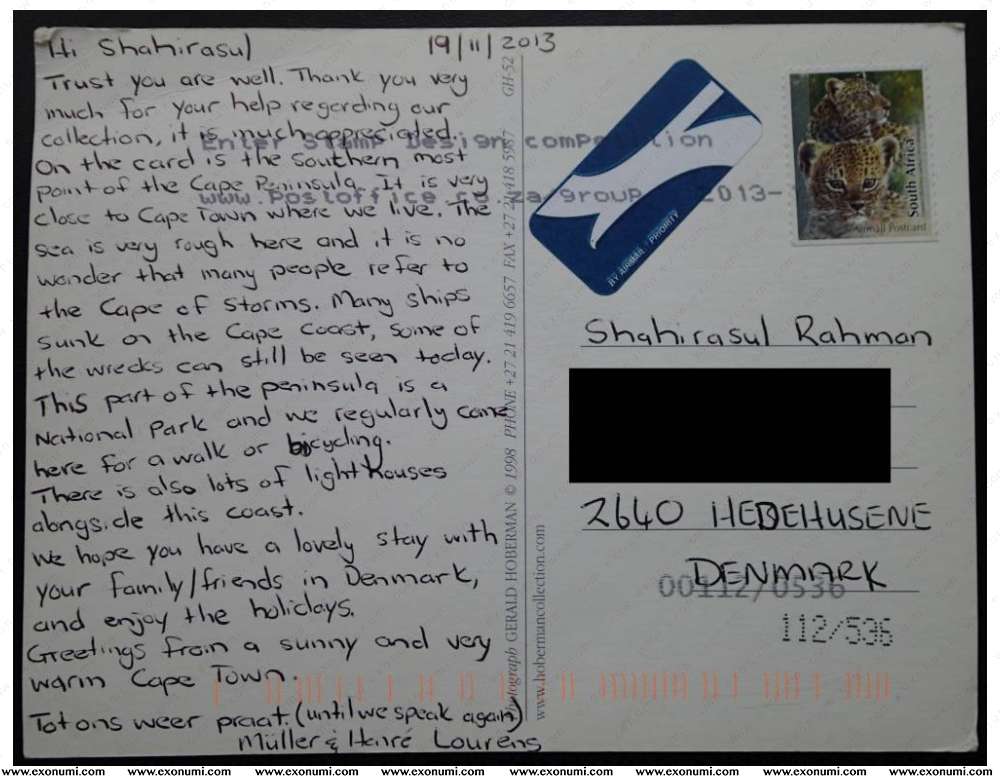 Hi Shahirasul
19/11/2013
Trust you are well. Thank you very
much for your help regarding our
collection, it is much appreciated.
On the card is the Southern most
point of the Cape Peninsula. It is very
close to Cape Town where we live. The
sea is very rough here and it is no
wonder that many people refer to
the Cape of Storms. Many ships
sunk on the Cape Coast, some of
the wrecks can still be seen today.
This part of the peninsula is a
National Park and we regularly come
here for a walk or bicycling.
There is also lots of lighthouses
alongside this coast.
We hope you have a lovely stay with
your family/friends in Denmark,
and enjoy the holidays.
Greetings from a sunny and very
warm Cape Town.
Tot ons weer praat. (until we speak again)
Müller & Henré Lourens
Enter Stamp Design competition
www.postoffice.co.za/group 2013-
Photograph GERALD HOBERMAN © 1998 PHONE +27 21 419 6657 FAX +27 21 418 5987 GH-52
www.hobermancollection.com
BY AIRMAIL · PRIORITY
South Africa
Airmail Postcard
Shahirasul Rahman
2640 HEDEHUSENE
DENMARK
00112/0536
112/536
www.exonumi.com www.exonumi.com www.exonumi.com www.exonumi.com www.exonumi.com www.exonumi.com www.exonumi.com www.exonumi.com